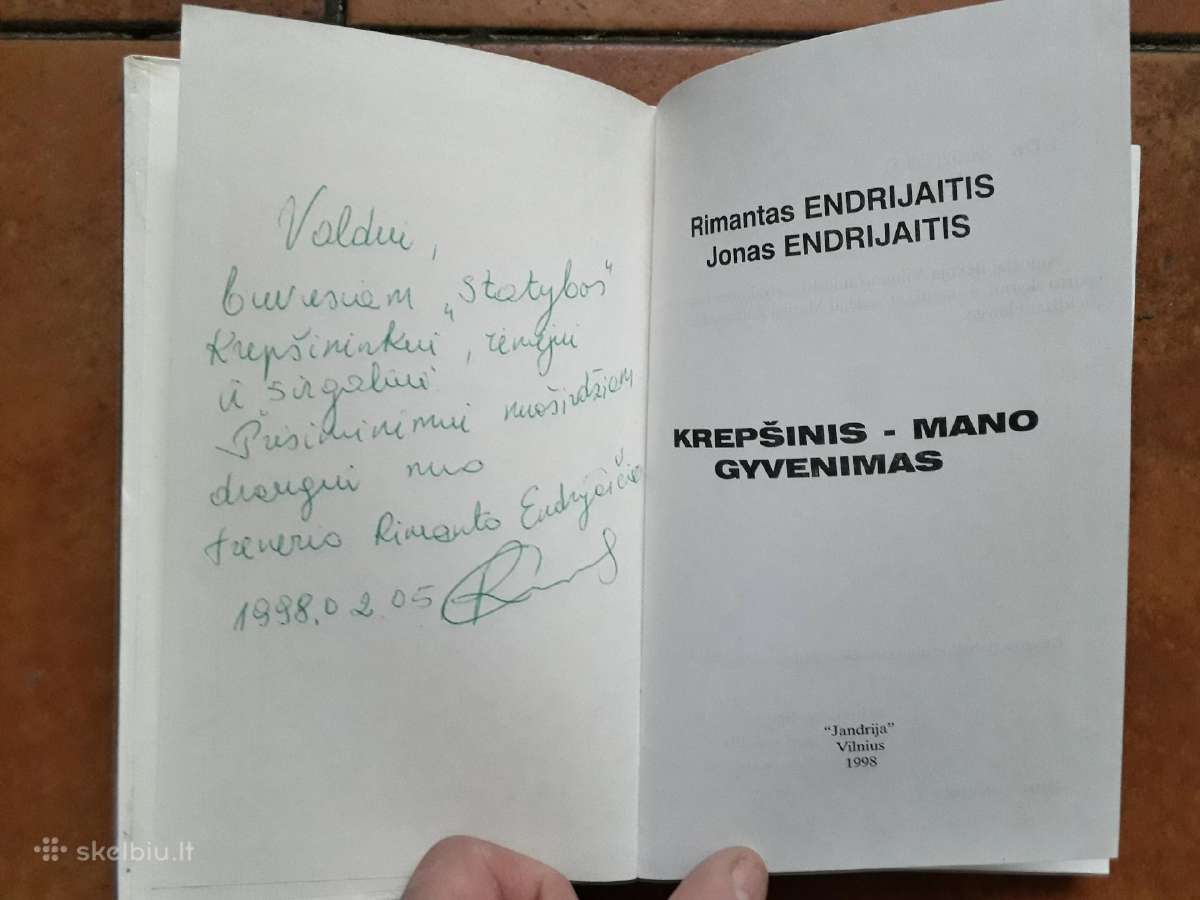 Valdui,
buvusiam „Statybos“
Krepšininkui, rėmėjui
ir sirgaliui
Prisiminimui nuoširdžiam
draugui nuo
trenerio Rimanto Endrijaičio
1998.02.05
Rimantas ENDRIJAITIS
Jonas ENDRIJAITIS
KREPŠINIS - MANO
GYVENIMAS
“Jandrija”
Vilnius
1998
skelbiu.lt